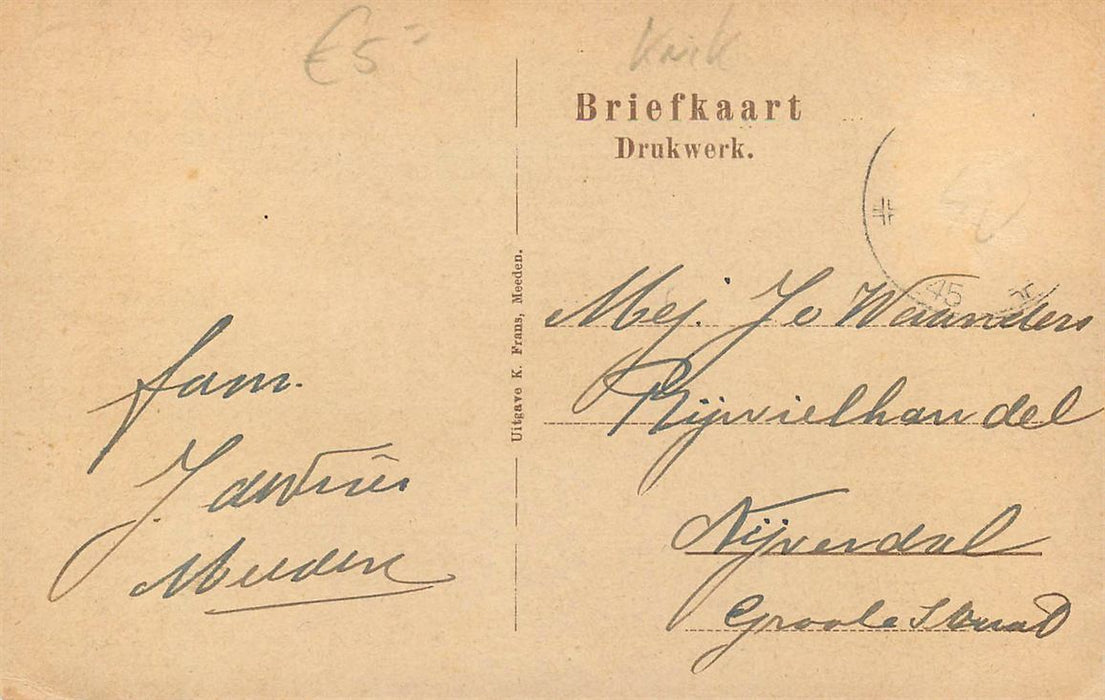 €5=
Knik
Briefkaart
Drukwerk.
45
Uitgave K. Frans, Meeden.
Mej. Jo Waanders
Rijwielhandel
Nijverdal
Groote Straat
fam.
J.
Meeden